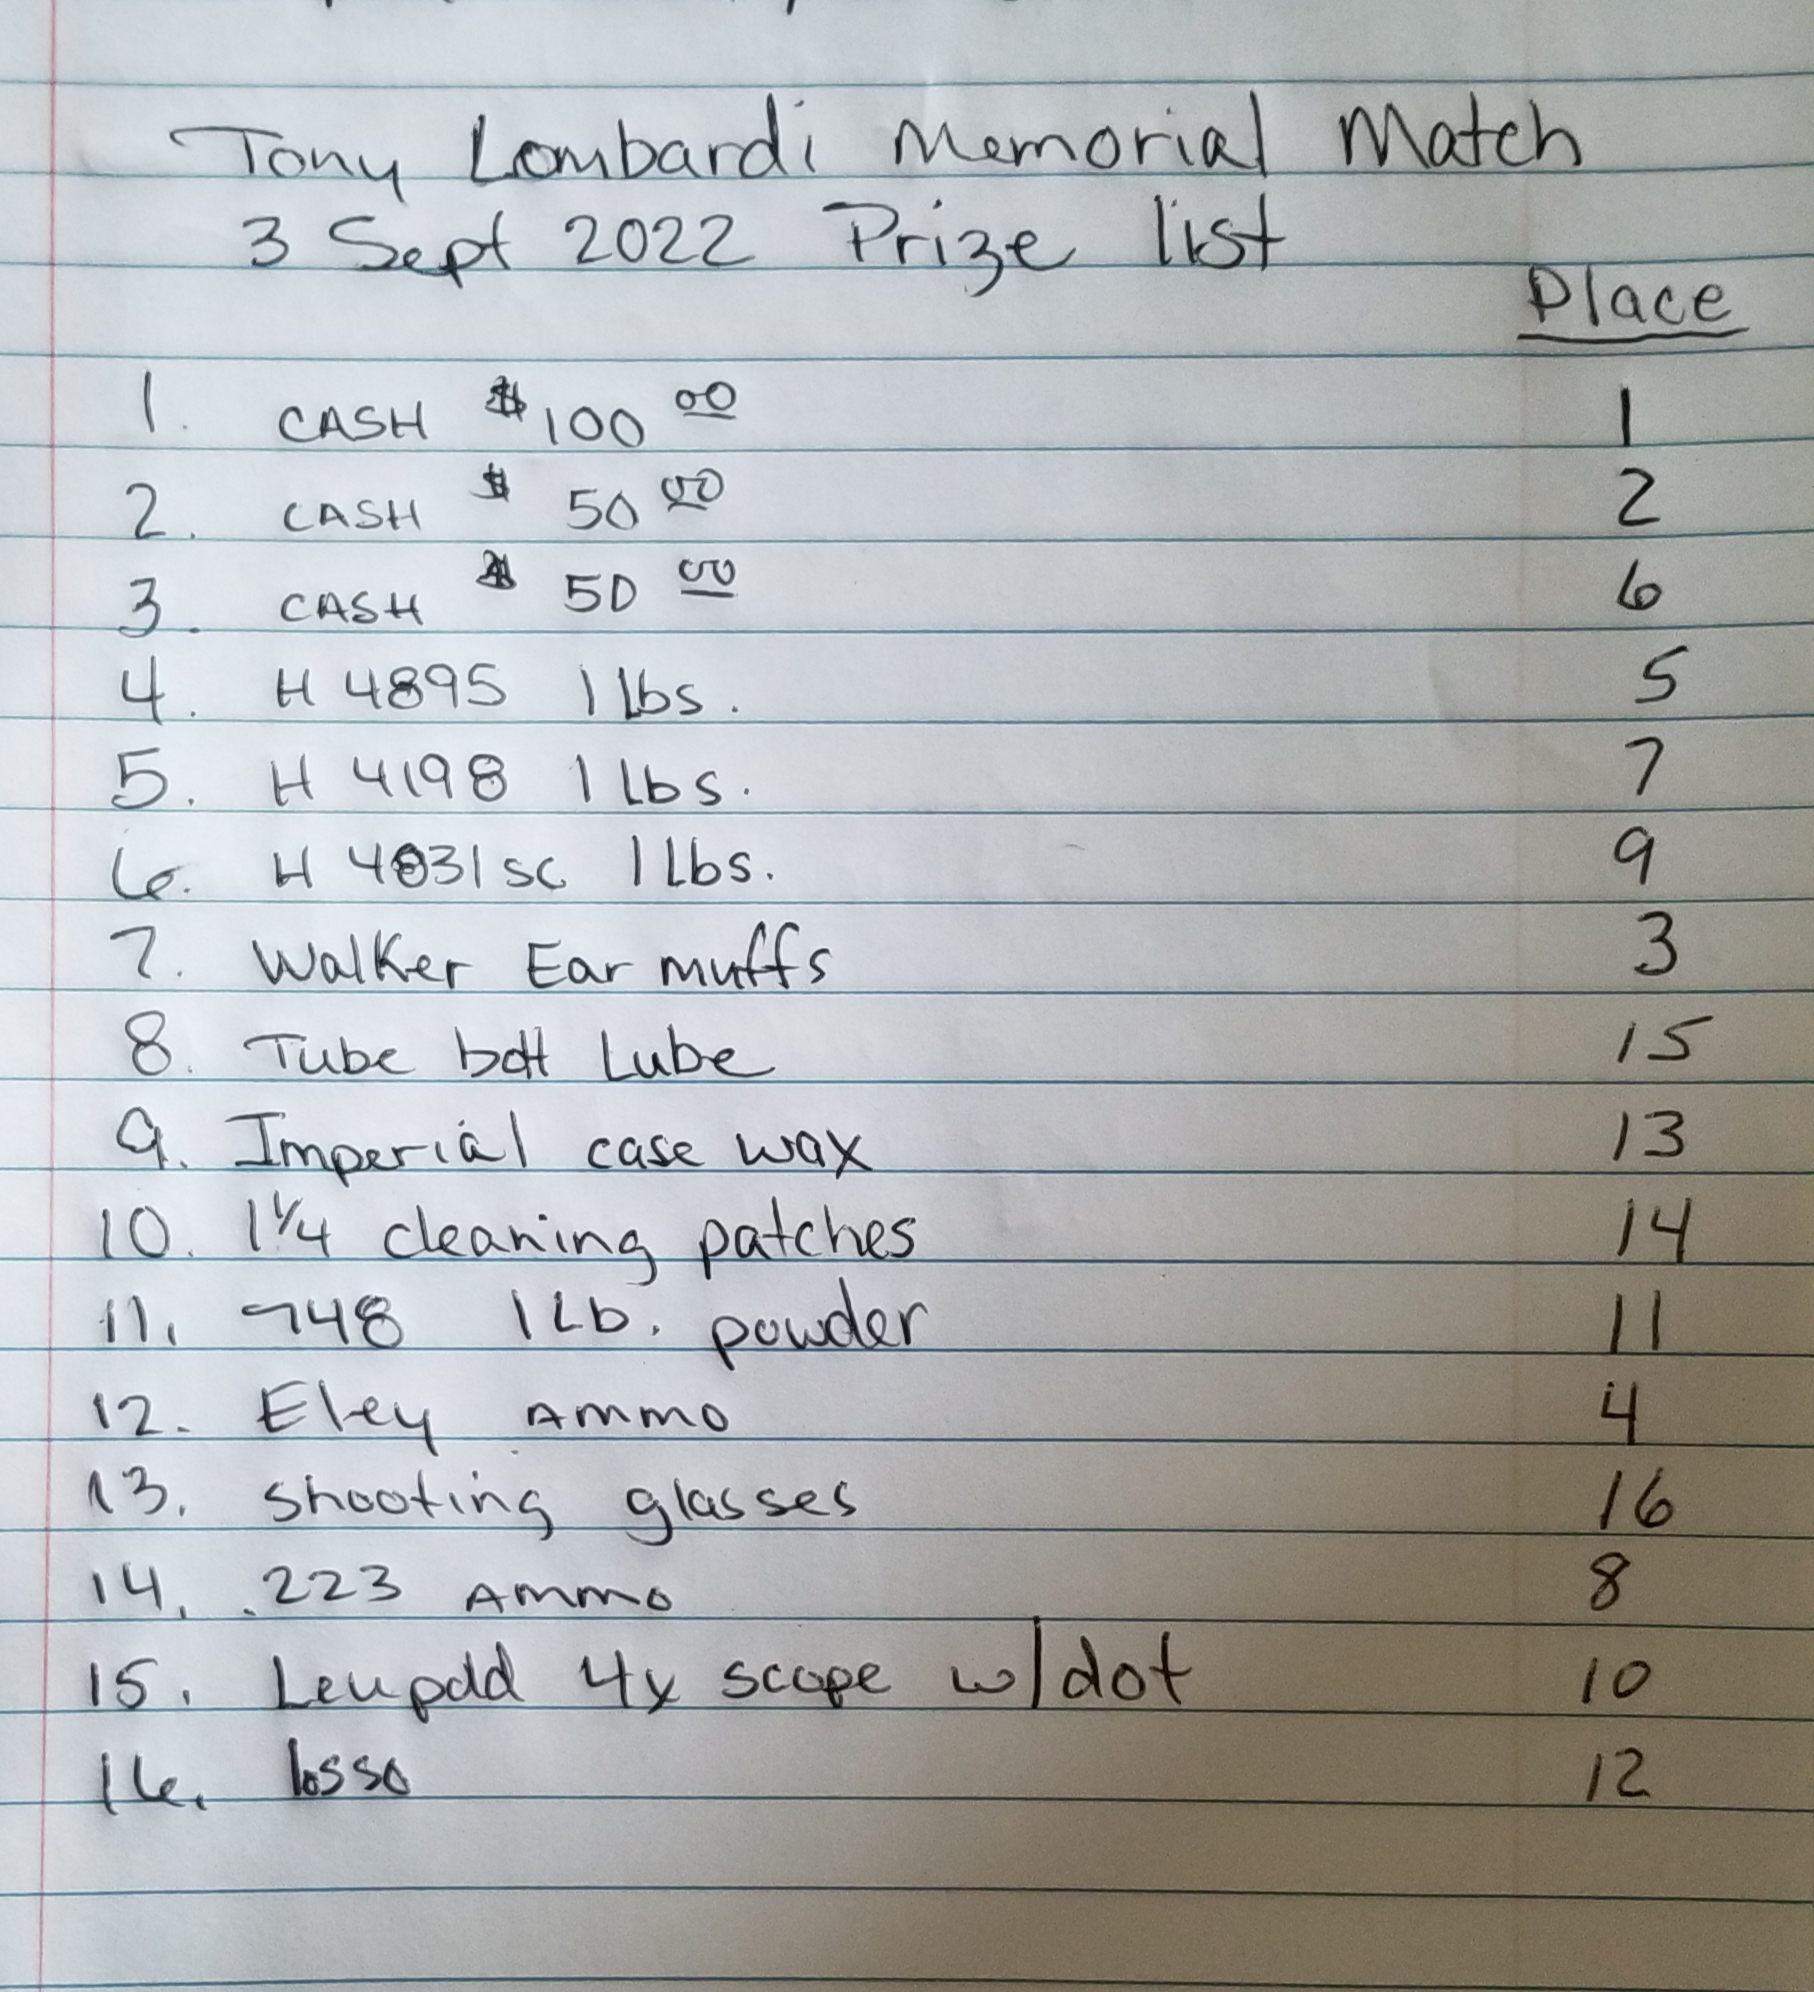 Tony Lombardi Memorial Match
3 Sept 2022 Prize list
Place
1. CASH $100 00 1
2. CASH $ 50 00 2
3. CASH $ 50 00 6
4. H 4895 1 lbs. 5
5. H 4198 1 Lbs. 7
6. H 4831 sc 1 Lbs. 9
7. Walker Ear muffs 3
8. Tube bolt Lube 15
9. Imperial case wax 13
10. 1 1/4 cleaning patches 14
11. 748 1 Lb. powder 11
12. Eley Ammo 4
13. Shooting glasses 16
14. .223 Ammo 8
15. Leupold 4x scope w/dot 10
16. losso 12